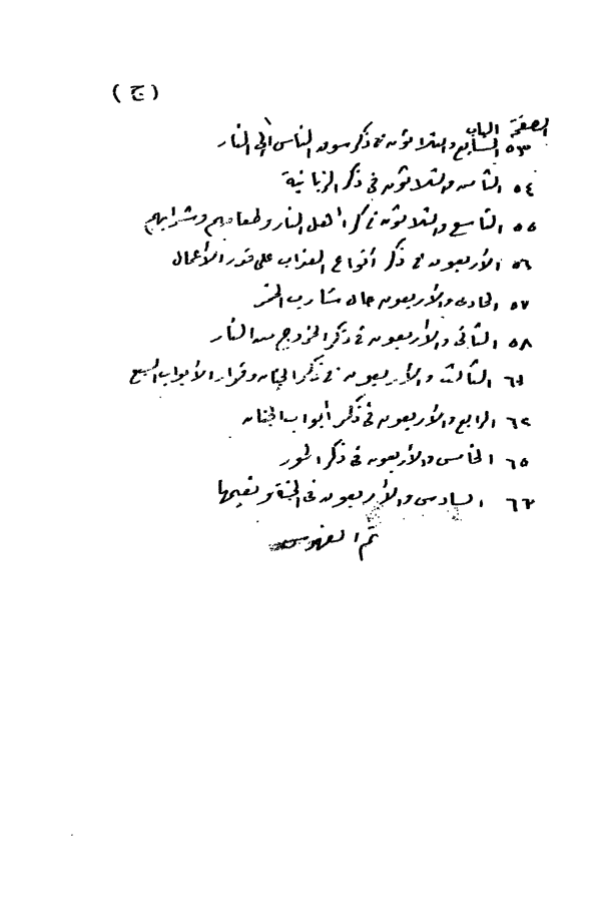 (ج)
الصفحة الباب
٥٣ السابع والثلاثون فى ذكر سوق الناس الى النار
٥٤ الثامن والثلاثون فى ذكر الزبانية
٥٥ التاسع والثلاثون فى ذكر أهل النار وطعامهم وشرابهم
٥٦ الأربعون فى ذكر أنواع العذاب على قدر الأعمال
٥٧ الحادى والأربعون حال شارب الخمر
٥٨ الثانى والأربعون فى ذكر الخروج من النار
٦١ الثالث والأربعون فى ذكر الجنان وقرار الأبواب السبع
٦٢ الرابع والأربعون فى ذكر أبواب الجنان
٦٥ الخامس والأربعون فى ذكر الحور
٦٣ السادس والأربعون فى الجنة ونعيمها
تم الفهرس